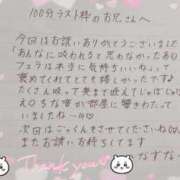 100分ラスト枠のお兄さんへ
今回はお誘いありがとうございました
「あんなに吹われると思わなかった」
フェラはネコに気持ちいいねって
褒めてくれてとても嬉しかったです♪
たくさん吸って奥まで咥えてしゃぶ
えろちな音が部屋に響きわたって
いましたね〜
次回はごっくんさせてくださいね
またお誘いお待ちしてます
Thank you
なずな